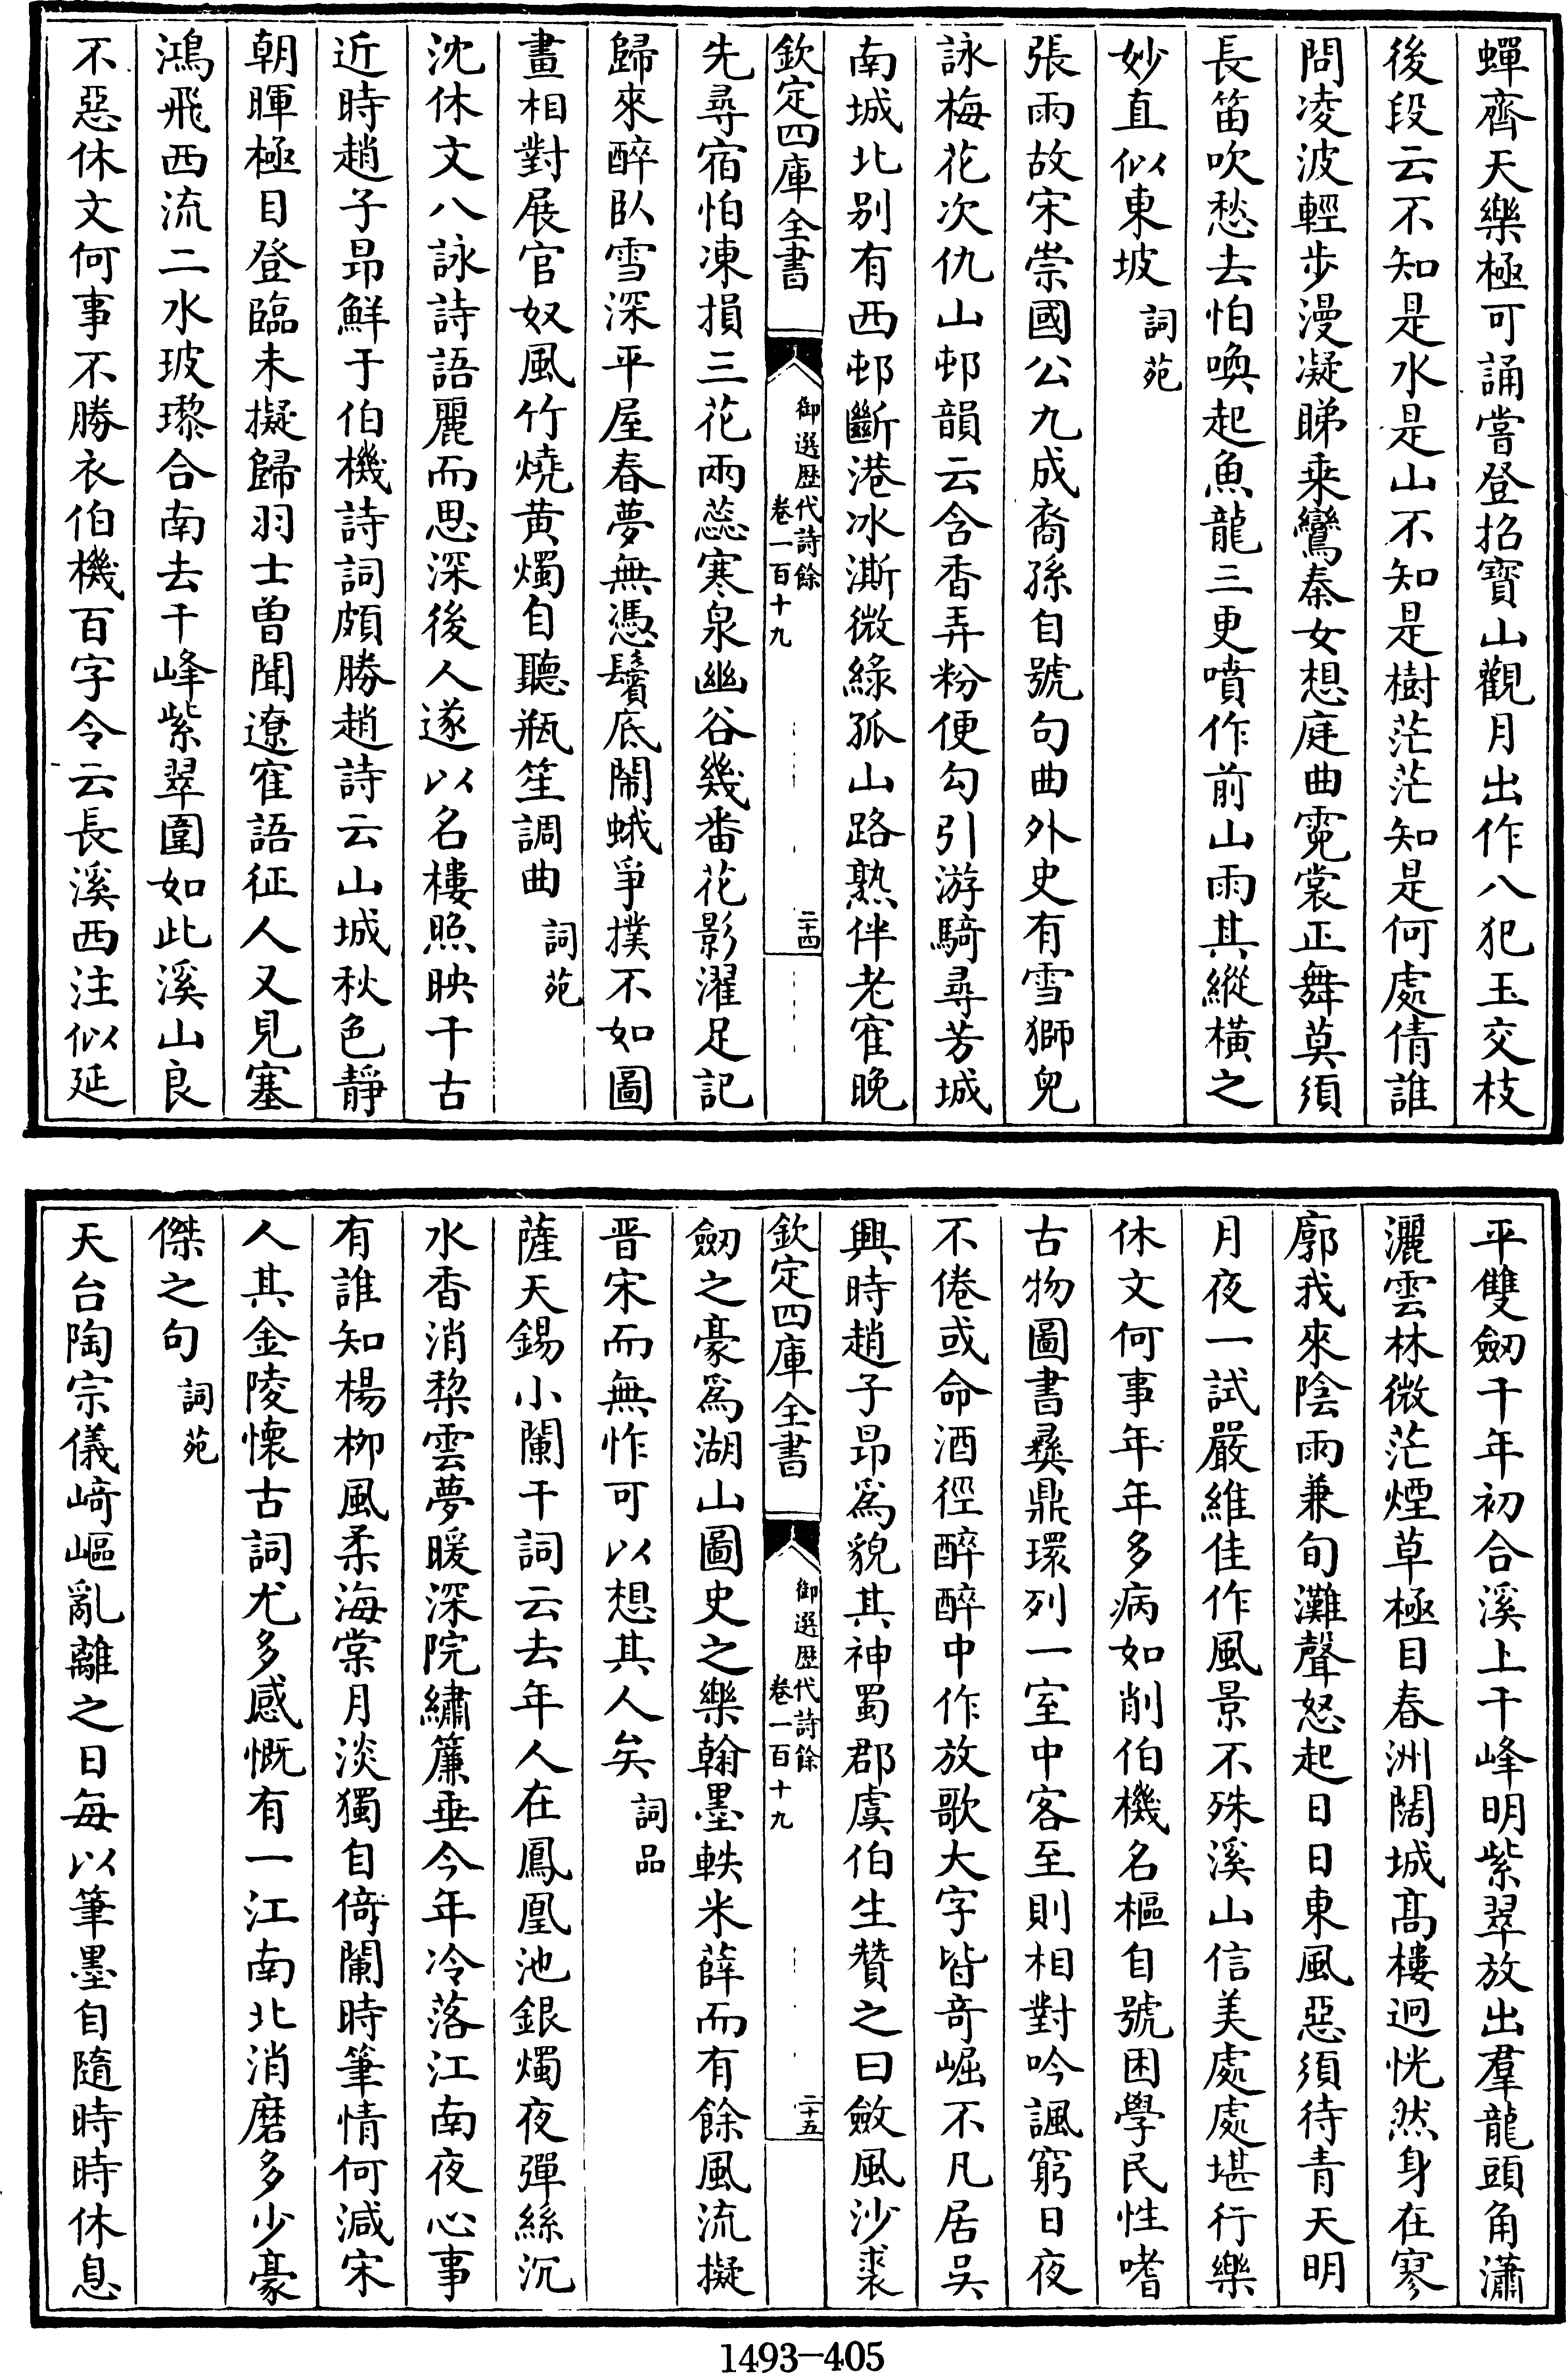 蟬齊天樂極可誦嘗登招寶山觀月出作八犯玉交枝
後段云不知是水是山不知是樹茫茫知是何處倩誰
問凌波輕步漫凝睇乗鸞秦女想庭曲霓裳正舞莫須
長笛吹愁去怕喚起魚龍三更噴作前山雨其縱橫之
妙直似東坡 詞苑
張雨故宋崇國公九成裔孫自號句曲外史有雪獅兒
詠梅花次仇山邨韻云含香弄粉便勾引游騎尋芳城
南城北别有西邨斷港冰澌微綠孤山路熟伴老寉晚
欽定四庫全書
御選歴代詩餘
卷一百十九
二十四
先尋宿怕凍損三花兩蕊寒泉幽谷幾番花影濯足記
歸來醉臥雪深平屋春夢無憑鬢底鬧蛾爭撲不如圖
畫相對展官奴風竹燒黄燭自聽瓶笙調曲 詞苑
沈休文八詠詩語麗而思深後人遂以名樓照映千古
近時趙子昂鮮于伯機詩詞頗勝趙詩云山城秋色靜
朝暉極目登臨未擬歸羽士曾聞遼寉語征人又見塞
鴻飛西流二水玻瓈合南去千峰紫翠圍如此溪山良
不惡休文何事不勝衣伯機百字令云長溪西注似延
平雙劒千年初合溪上千峰明紫翠放出羣龍頭角瀟
灑雲林微茫煙草極目春洲闊城髙樓迥恍然身在寥
廓我來陰雨兼旬灘聲怒起日日東風惡須待青天明
月夜一試嚴維佳作風景不殊溪山信美處處堪行樂
休文何事年年多病如削伯機名樞自號困學民性嗜
古物圖書彝鼎環列一室中客至則相對吟諷窮日夜
不倦或命酒徑醉醉中作放歌大字皆竒崛不凡居吳
興時趙子昂爲貌其神蜀郡虞伯生贊之曰斂風沙裘
欽定四庫全書
御選歴代詩餘
卷一百十九
二十五
劒之豪爲湖山圖史之樂翰墨軼米薛而有餘風流擬
晋宋而無怍可以想其人矣 詞品
薩天錫小闌干詞云去年人在鳳凰池銀燭夜彈絲沉
水香消棃雲夢暖深院繡簾垂今年冷落江南夜心事
有誰知楊柳風柔海棠月淡獨自倚闌時筆情何減宋
人其金陵懷古詞尤多感慨有一江南北消磨多少豪
傑之句 詞苑
天台陶宗儀﨑嶇亂離之日每以筆墨自隨時時休息
1493—405